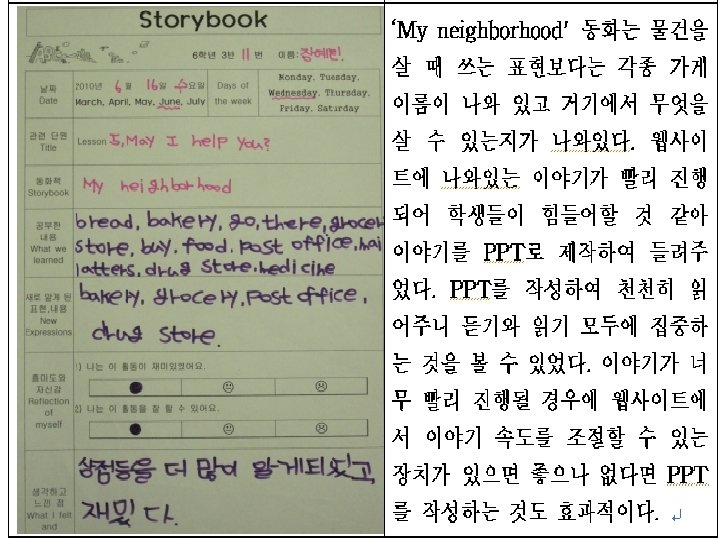 Storybook
6학년 3반 11번 이름: 장혜빈
날짜
Date
2010년 6월 16일 수요일
March, April, May, June, July
Days of
the week
Monday, Tuesday,
Wednesday, Thursday,
Friday, Saturday
관련 단원
Title
Lesson 5, May I help you?
동화책
Storybook
My neighborhood
공부한
내용
What we
learned
bread, bakery, go, there, grocer
store, buy, food, post office, mai
latters, drug store, medicine
새로 알게 된
표현, 내용
New
Expressions
bakery, grocery, post office,
drug store.
흥미도와
자신감
Reflection
of
myself
1) 나는 이 활동이 재미있었어요.
2) 나는 이 활동을 잘 할 수 있어요.
생각하고
느낀 점
What I felt
and
상점들을 더 많이 알게되었고,
재밌다.
‘My neighborhood’ 동화는 물건을
살 때 쓰는 표현보다는 각종 가게
이름이 나와 있고 거기에서 무엇을
살 수 있는지가 나와있다. 웹사이
트에 나와있는 이야기가 빨리 진행
되어 학생들이 힘들어할 것 같아
이야기를 PPT로 제작하여 들려주
었다. PPT를 작성하여 천천히 읽
어주니 듣기와 읽기 모두에 집중하
는 것을 볼 수 있었다. 이야기가 너
무 빨리 진행될 경우에 웹사이트에
서 이야기 속도를 조절할 수 있는
장치가 있으면 좋으나 없다면 PPT
를 작성하는 것도 효과적이다.